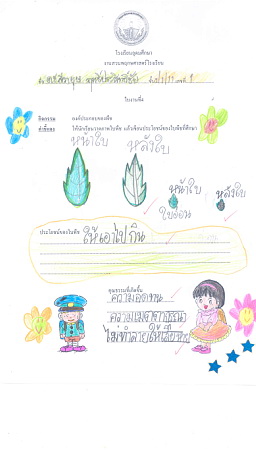 โรงเรียนอุดมศึกษา
งานสวนพฤกษศาสตร์โรงเรียน
ใบงานที่
กิจกรรม องค์ประกอบของพืช
คำชี้แจง ให้นักเรียนวาดภาพใบพืช แล้วเขียนประโยชน์ของใบพืชที่ศึกษา
หน้าใบ หลังใบ
หน้าใบ หลังใบ
ใบอ่อน
ประโยชน์ของใบพืช ให้เอาไปกิน
คุณธรรมที่เกิดขึ้น
ความอดทน
ความเมตตากรุณา
ไม่ทำลายให้เสียหาย